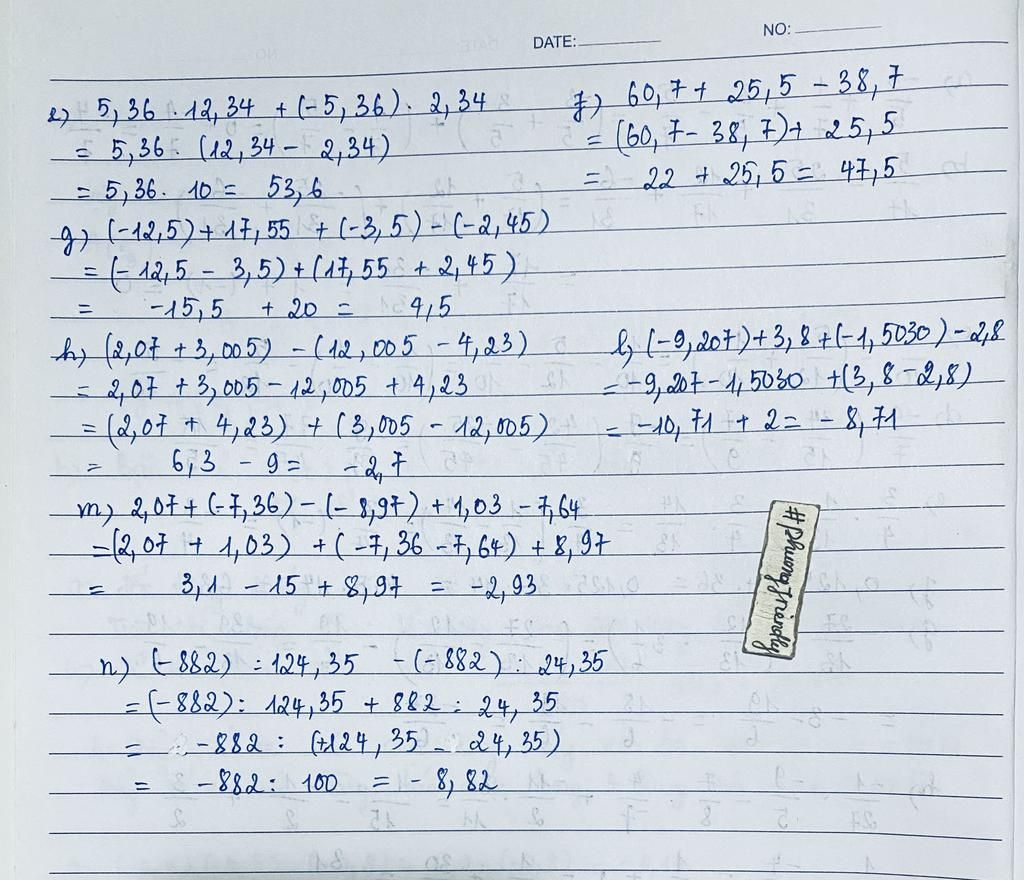 DATE: NO:
e) 5,36 . 12,34 + (-5,36) . 2,34
= 5,36 . (12,34 - 2,34)
= 5,36 . 10 = 53,6
f) 60,7 + 25,5 - 38,7
= (60,7 - 38,7) + 25,5
= 22 + 25,5 = 47,5
g) (-12,5) + 17,55 + (-3,5) - (-2,45)
= (-12,5 - 3,5) + (17,55 + 2,45)
= -15,5 + 20 = 4,5
h) (2,07 + 3,005) - (12,005 - 4,23)
= 2,07 + 3,005 - 12,005 + 4,23
= (2,07 + 4,23) + (3,005 - 12,005)
= 6,3 - 9 = -2,7
l) (-9,207) + 3,8 + (-1,5030) - 2,8
= -9,207 - 1,5030 + (3,8 - 2,8)
= -10,71 + 2 = -8,71
m) 2,07 + (-7,36) - (-8,97) + 1,03 - 7,64
= (2,07 + 1,03) + (-7,36 - 7,64) + 8,97
= 3,1 - 15 + 8,97 = -2,93
n) (-882) : 124,35 - (-882) : 24,35
= (-882) : 124,35 + 882 : 24,35
= -882 : (+124,35 - 24,35)
= -882 : 100 = -8,82
#phuongfriendly